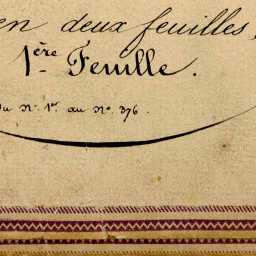 en deux feuilles,
1ère Feuille.
Du No. 1er au No. 376.